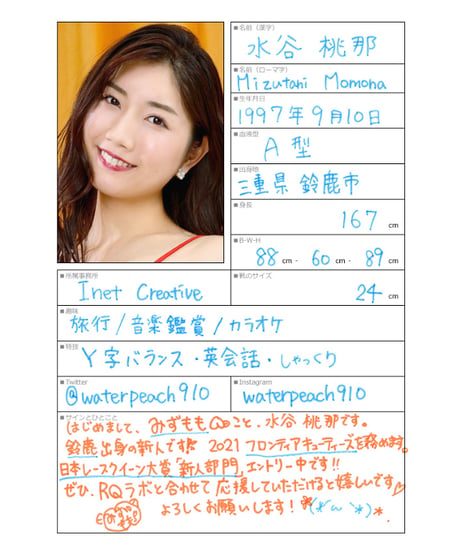 ■名前（漢字）
水谷 桃那
■名前（ローマ字）
Mizutani Momona
■生年月日
1997年9月10日
■血液型
A 型
■出身地
三重県 鈴鹿市
■身長
167 cm
■B-W-H
88 cm - 60 cm - 89 cm
■所属事務所
Inet Creative
■靴のサイズ
24 cm
■趣味
旅行/音楽鑑賞/カラオケ
■特技
Y字バランス・英会話・しゃっくり
■Twitter
@waterpeach910
■Instagram
waterpeach910
■サインとひとこと
はじめまして、みずももこと、水谷 桃那です。
鈴鹿出身の新人です!! 2021 フロンティアキューティーズを務めます。
日本レースクイーン大賞「新人部門」エントリー中です!!
ぜひ、RQラボと合わせて応援していただけると嬉しいです♡
よろしくお願いします!